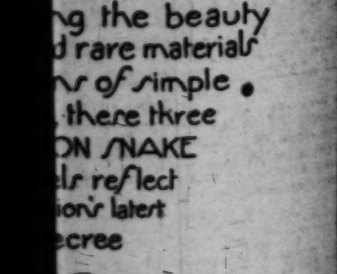 ng the beauty
d rare materials
ns of simple
, these three
ON SNAKE
els reflect
ion's latest
ecree